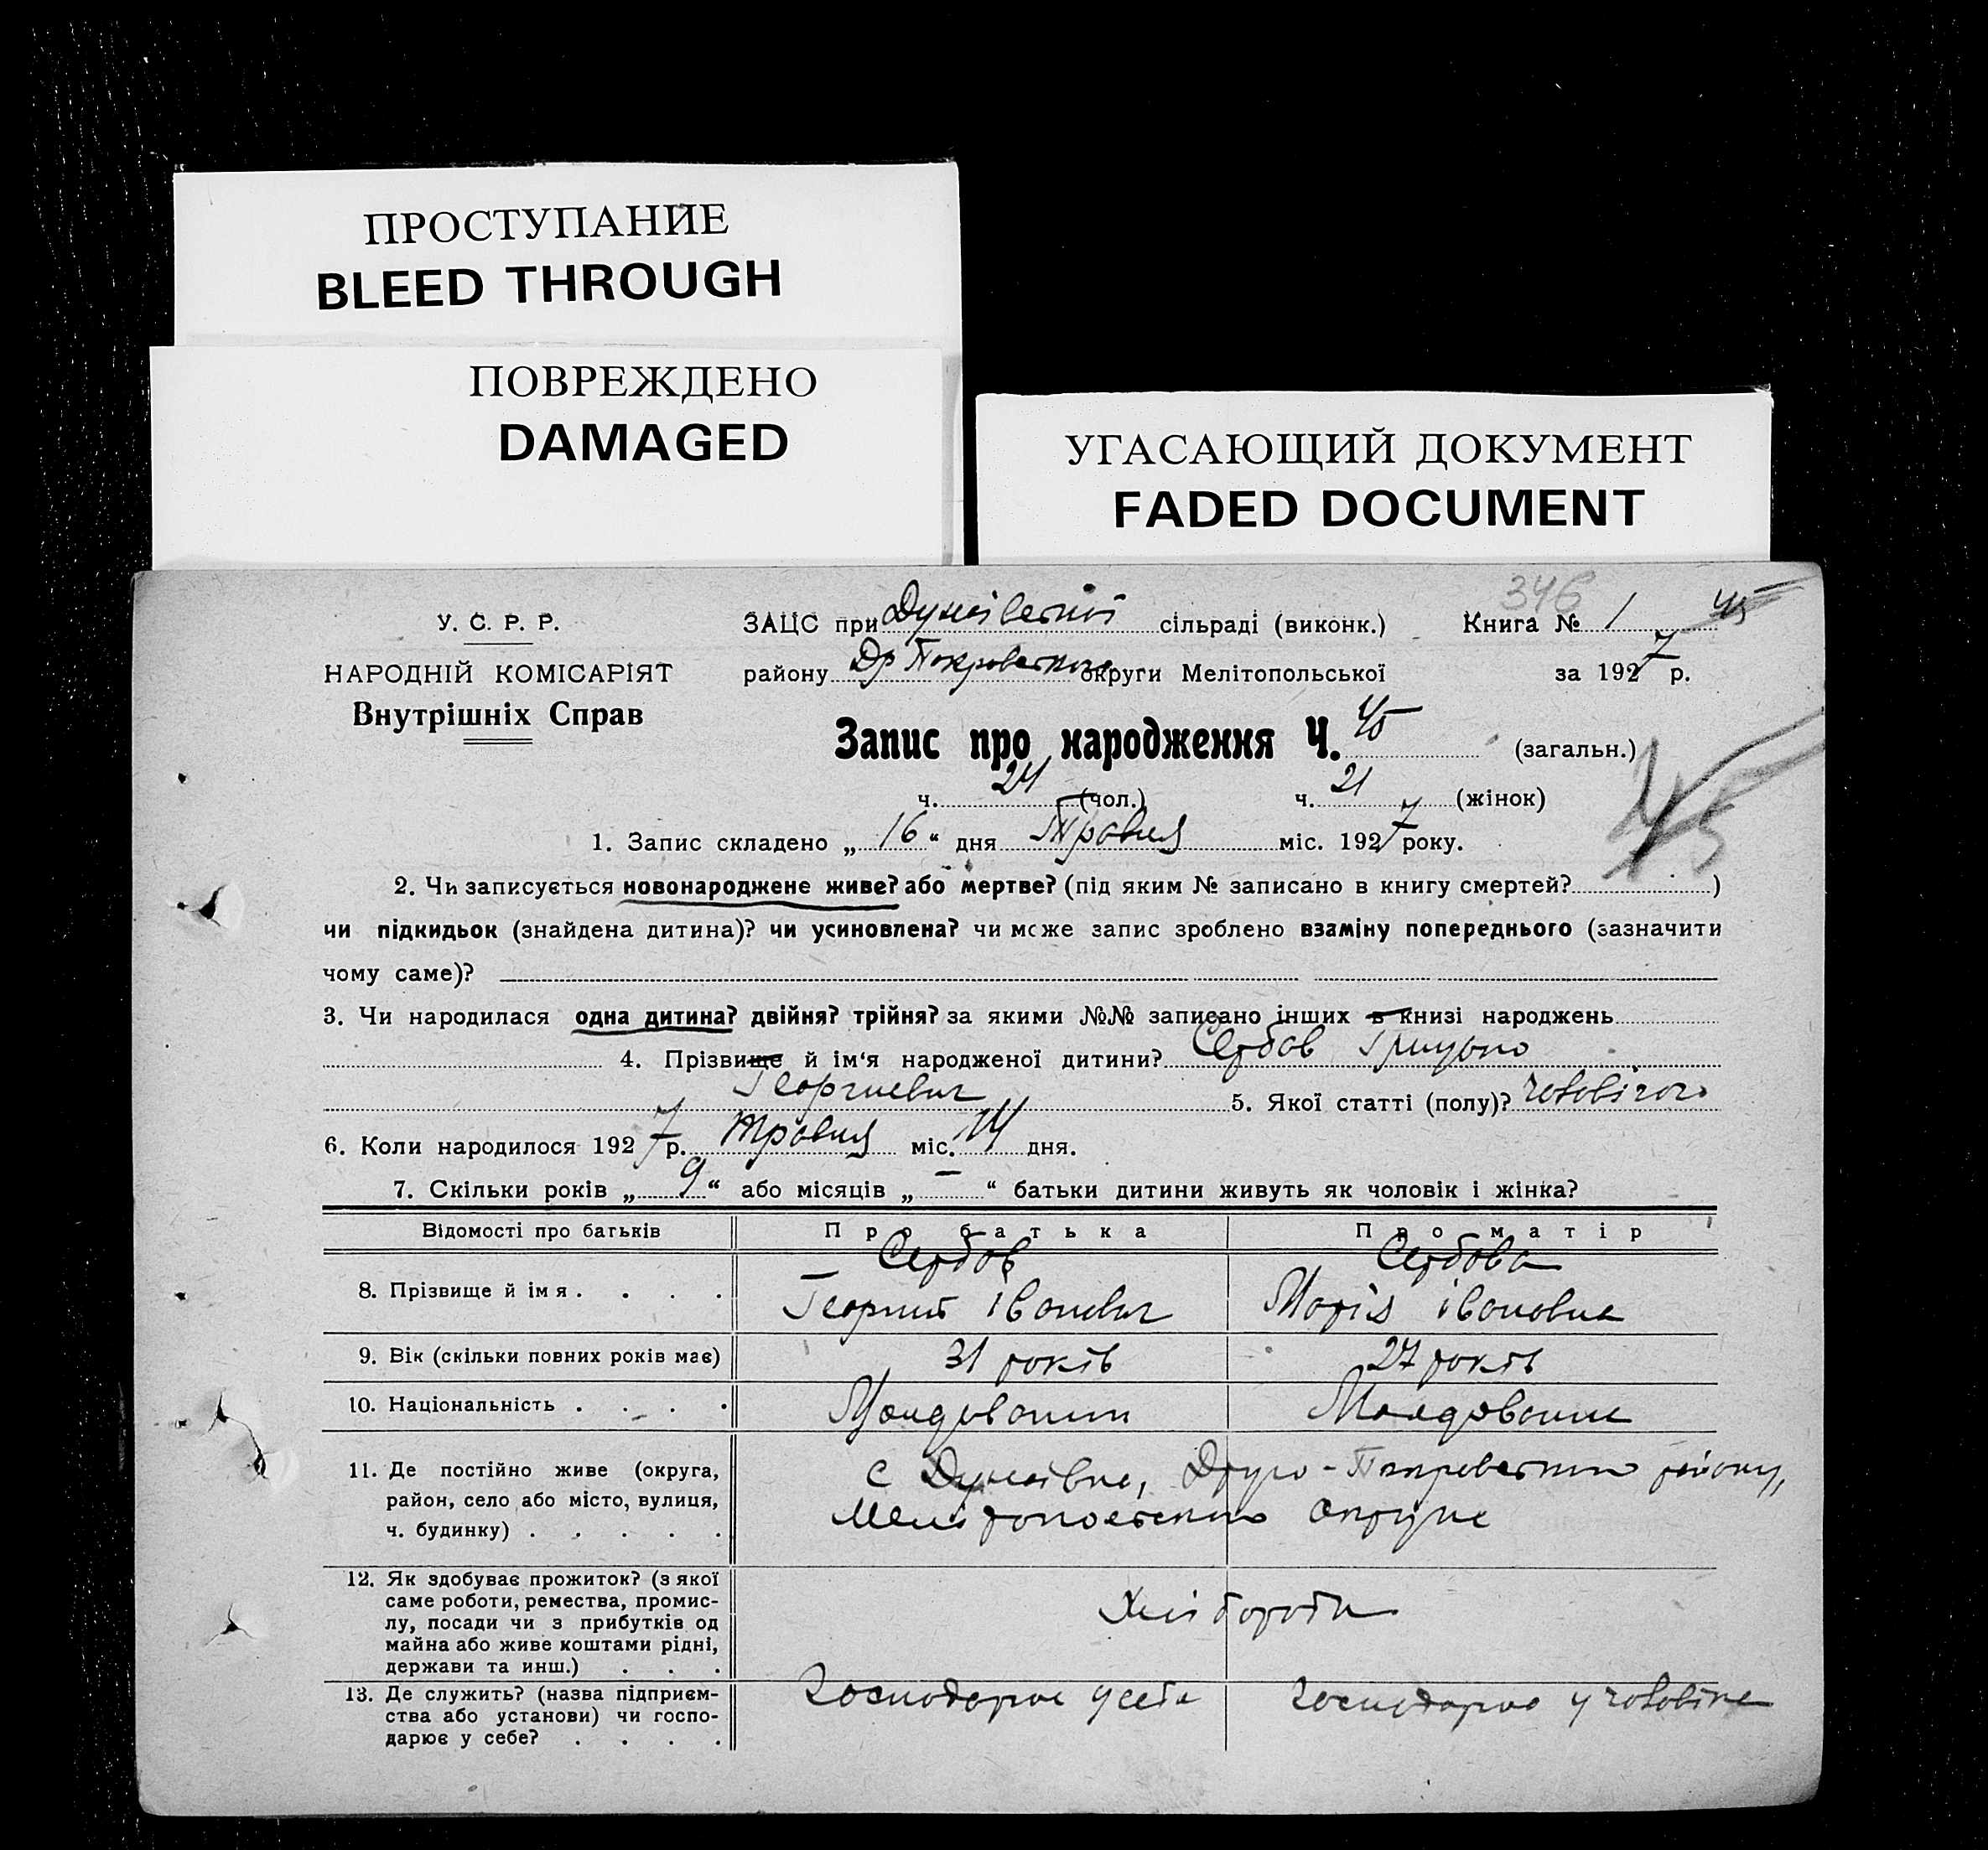 ПРОСТУПАНИЕ
BLEED THROUGH
ПОВРЕЖДЕНО
DAMAGED
УГАСАЮЩИЙ ДОКУМЕНТ
FADED DOCUMENT
346
45
У. С. Р. Р.
НАРОДНІЙ КОМІСАРІЯТ
Внутрішніх Справ
ЗАЦС при Дунаівській сільраді (виконк.) Книга № 1
району Др Покровського округи Мелітопольської за 1927 р.
Запис про народження Ч. 45 (загальн.)
45
ч. 24 (чол.) ч. 21 (жінок)
1. Запис складено „ 16 “ дня Травня міс. 1927 року.
2. Чи записується новонароджене живе? або мертве? (під яким № записано в книгу смертей? )
чи підкидьок (знайдена дитина)? чи усиновлена? чи може запис зроблено взаміну попереднього (зазначити
чому саме)?
3. Чи народилася одна дитина? двійня? трійня? за якими №№ записано інших в книзі народжень
4. Прізвище й ім‘я народженої дитини? Сербов Грицько
Георгиевич 5. Якої статті (полу)? чоловічого
6. Коли народилося 1927 р. Травня міс. 14 дня.
7. Скільки років „ 9 “ або місяців „ — “ батьки дитини живуть як чоловік і жінка?
Відомості про батьків Про батька Про матір
8. Прізвище й імя . . . . Сербов Сербова
Георгий Іванович Марія Івановна
9. Вік (скільки повних років має) 31 років 27 років
10. Національність . . . . Молдованин Молдованка
11. Де постійно живе (округа, с Дунаівка, Друго-Покровського району,
район, село або місто, вулиця, Мелітопольської округи
ч. будинку) . . . . .
12. Як здобуває прожиток? (з якої
саме роботи, ремества, промис- Хлібороби
лу, посади чи з прибутків од
майна або живе коштами рідні,
держави та инш.) . . .
13. Де служить? (назва підприєм- господарює у себе господарює у чоловіка
ства або установи) чи госпо-
дарює у себе? . . . .